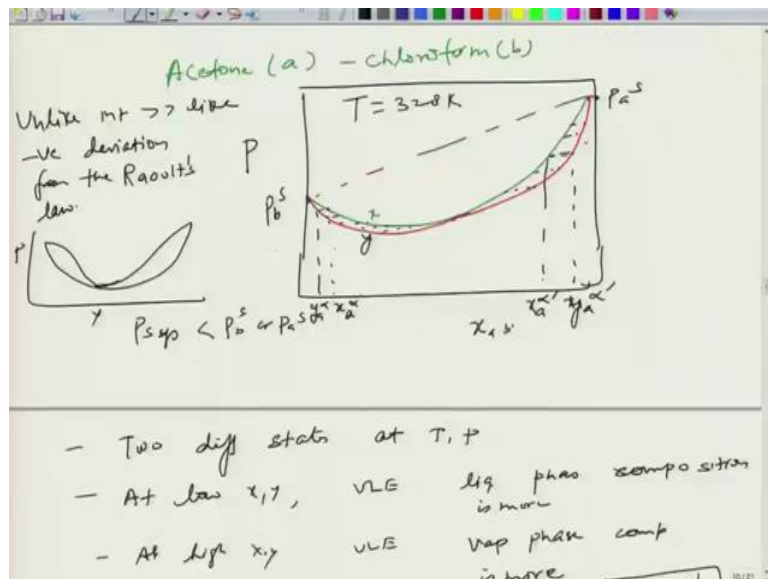 Acetone (a) - chloroform (b)
Unlike int >> like
-ve deviation
from the Raoult's
law.
P
y
P
T = 328K
Pa^s
Pb^s
x
y
ya^α xa^α
xa^α' ya^α'
Psys < Pb^s or Pa^s
- Two diff stats at T, P
- At low x, y, VLE liq phas composition
is more
- At high x, y VLE vap phase comp
is more